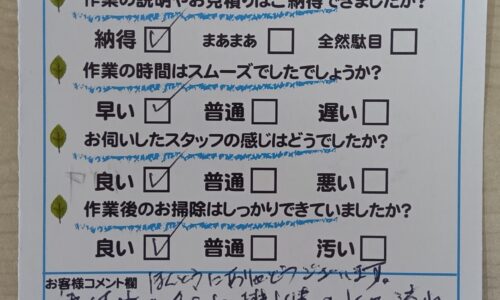 作業の説明やお見積りはご納得できましたか?
納得 ☑ まあまあ □ 全然駄目 □
作業の時間はスムーズでしたでしょうか?
早い ☑ 普通 □ 遅い □
お伺いしたスタッフの感じはどうでしたか?
良い ☑ 普通 □ 悪い □
作業後のお掃除はしっかりできていましたか?
良い ☑ 普通 □ 汚い □
お客様コメント欄 ほんとうにありがとうございます。